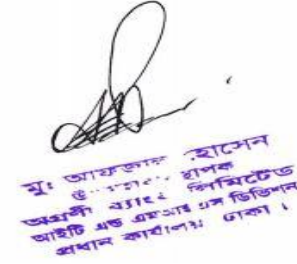 মুঃ আফজাল হোসেন
অগ্রণী ব্যাংক লিমিটেড
আইটি এন্ড এমআইএস ডিভিশন
প্রধান কার্যালয়, ঢাকা।